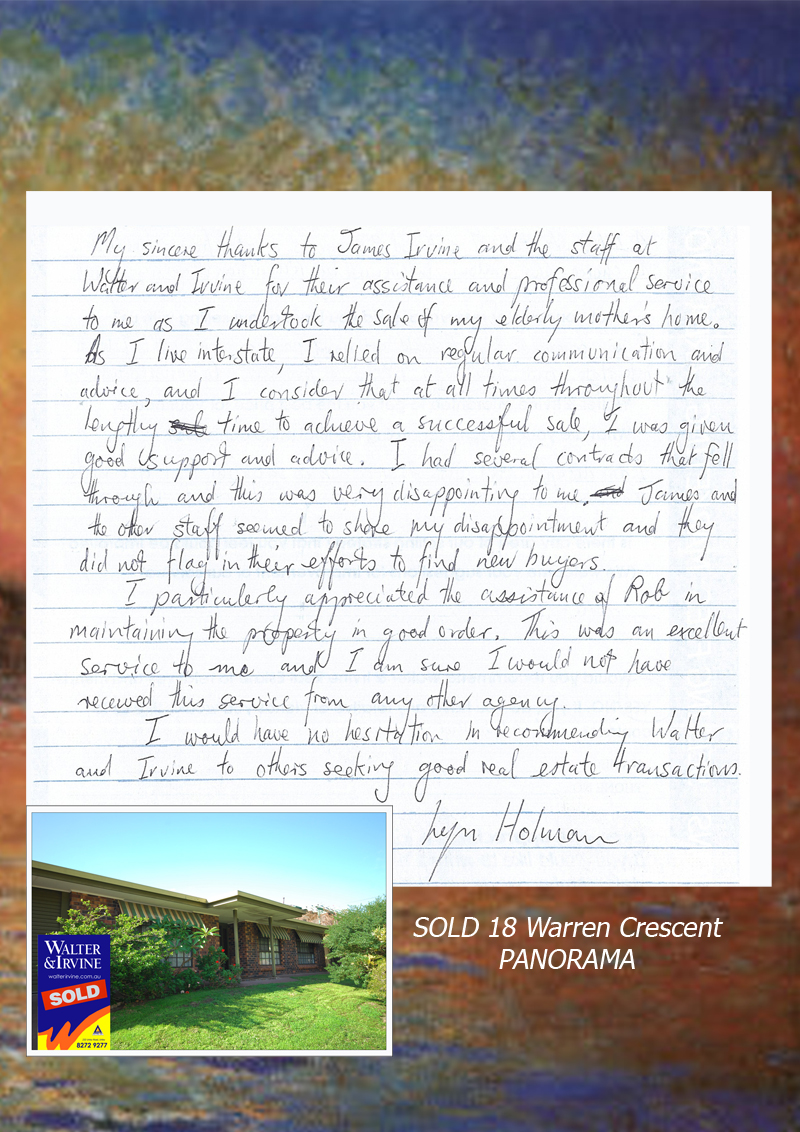 My sincere thanks to James Irvine and the staff at
Walter and Irvine for their assistance and professional service
to me as I undertook the sale of my elderly mother's home.
As I live interstate, I relied on regular communication and
advice, and I consider that at all times throughout the
lengthy time to achieve a successful sale, I was given
good support and advice. I had several contracts that fell
through and this was very disappointing to me. James and
the other staff seemed to share my disappointment and they
did not flag in their efforts to find new buyers.
I particularly appreciated the assistance of Rob in
maintaining the property in good order. This was an excellent
service to me and I am sure I would not have
received this service from any other agency.
I would have no hesitation in recommending Walter
and Irvine to others seeking good real estate transactions.
Lyn Holman
SOLD 18 Warren Crescent
PANORAMA
WALTER
& IRVINE
walterirvine.com.au
SOLD
8272 9277